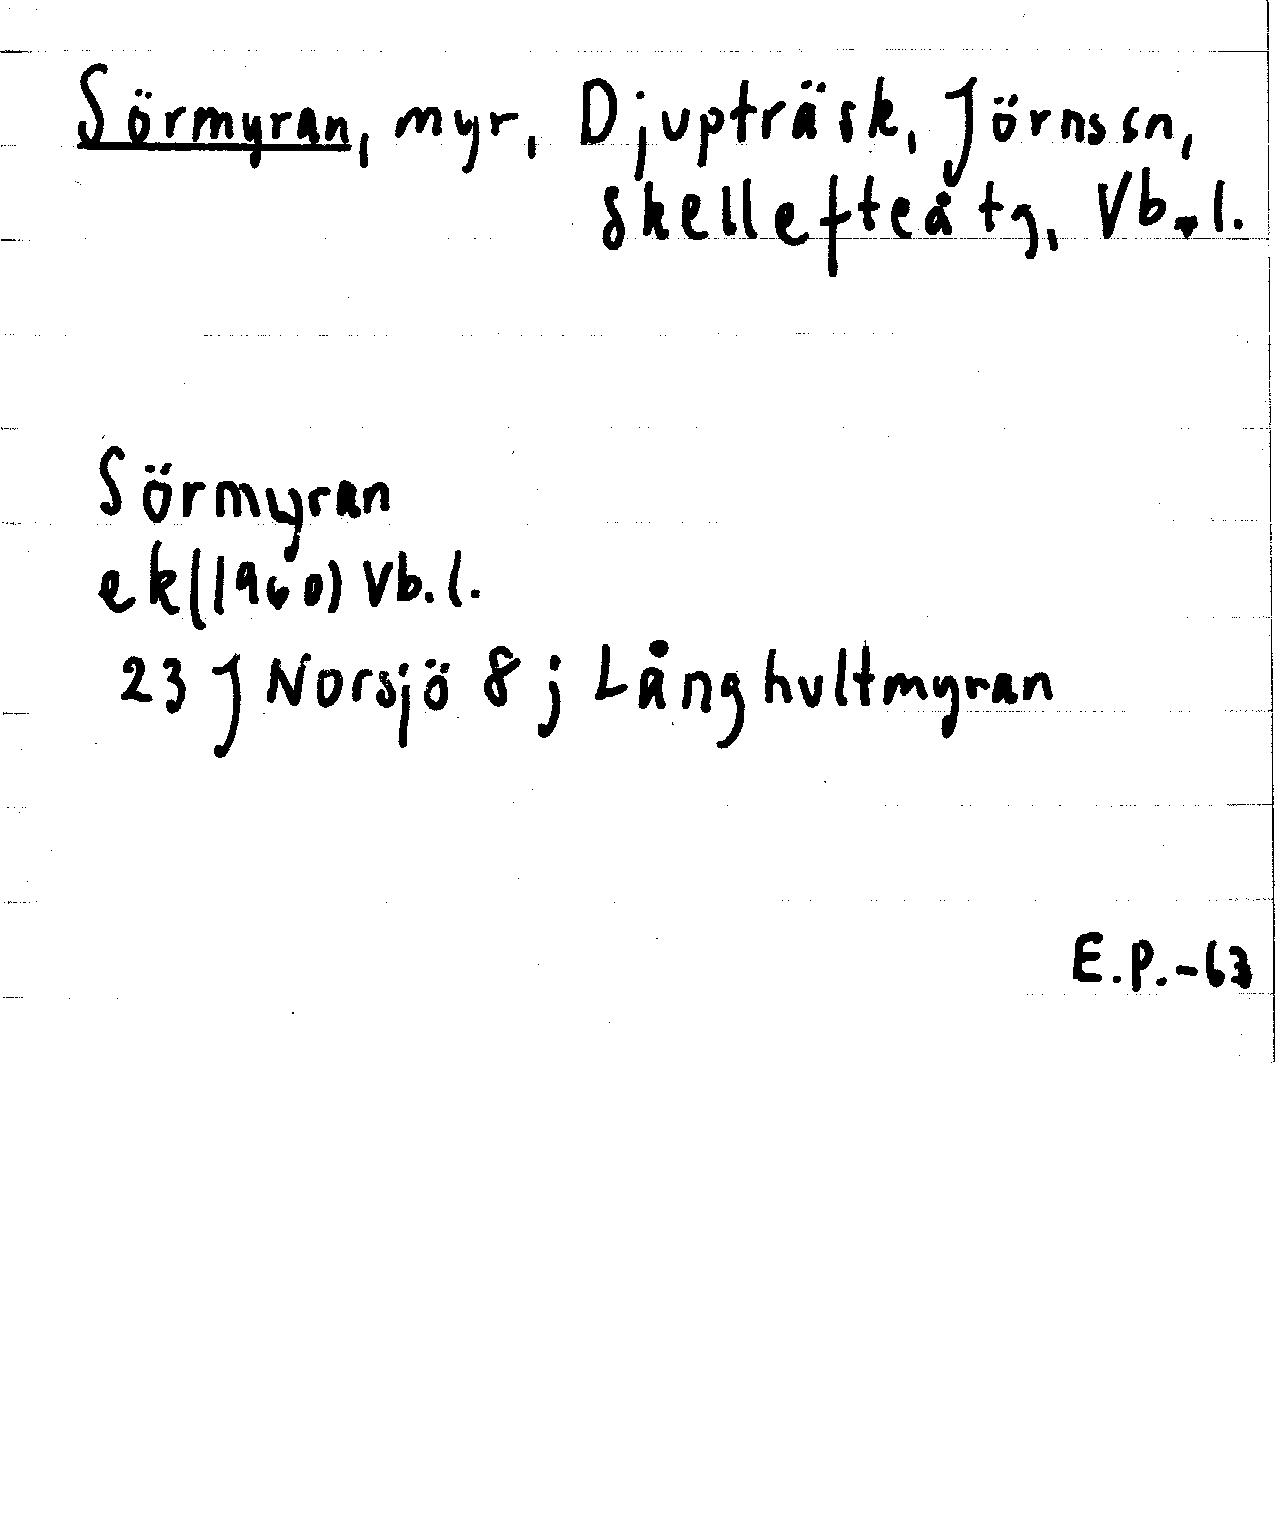 Sörmyran, myr, Djupträsk, Jörns sn,
Skellefteå tg, Vb.l.
Sörmyran
ek (1960) Vb.l.
23 J Norsjö 8 j Långhultmyran
E.P.-63